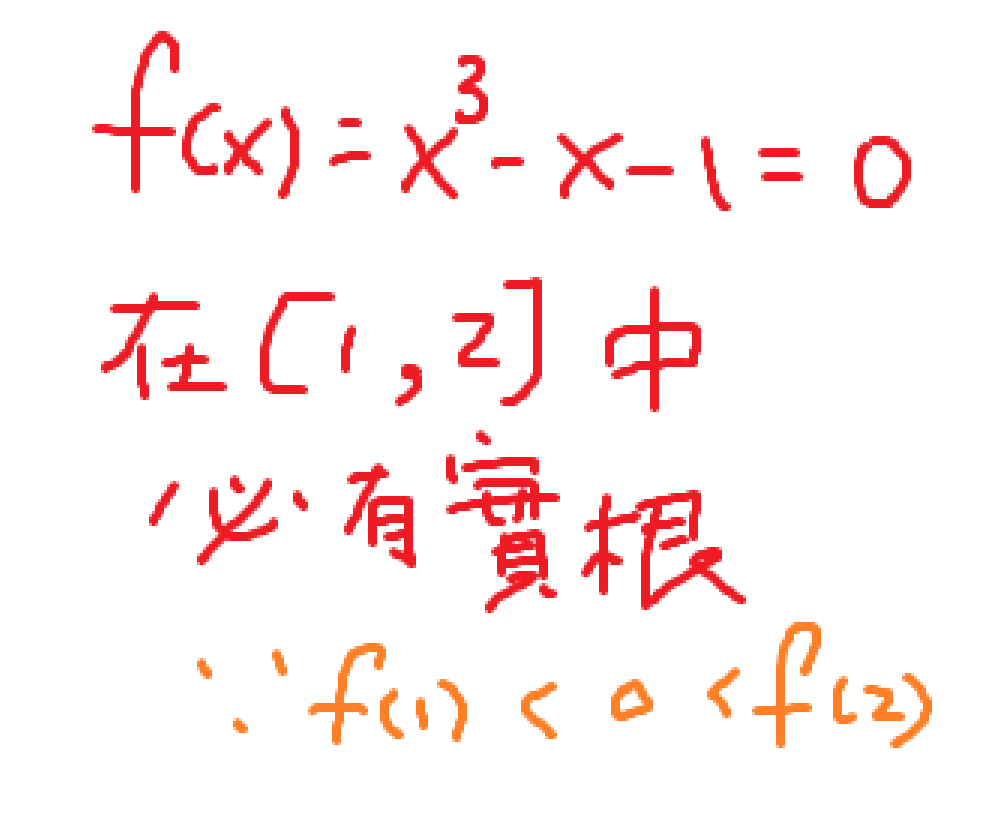 f(x) = x³ - x - 1 = 0
在 [1, 2] 中
必有實根
∵ f(1) < 0 < f(2)